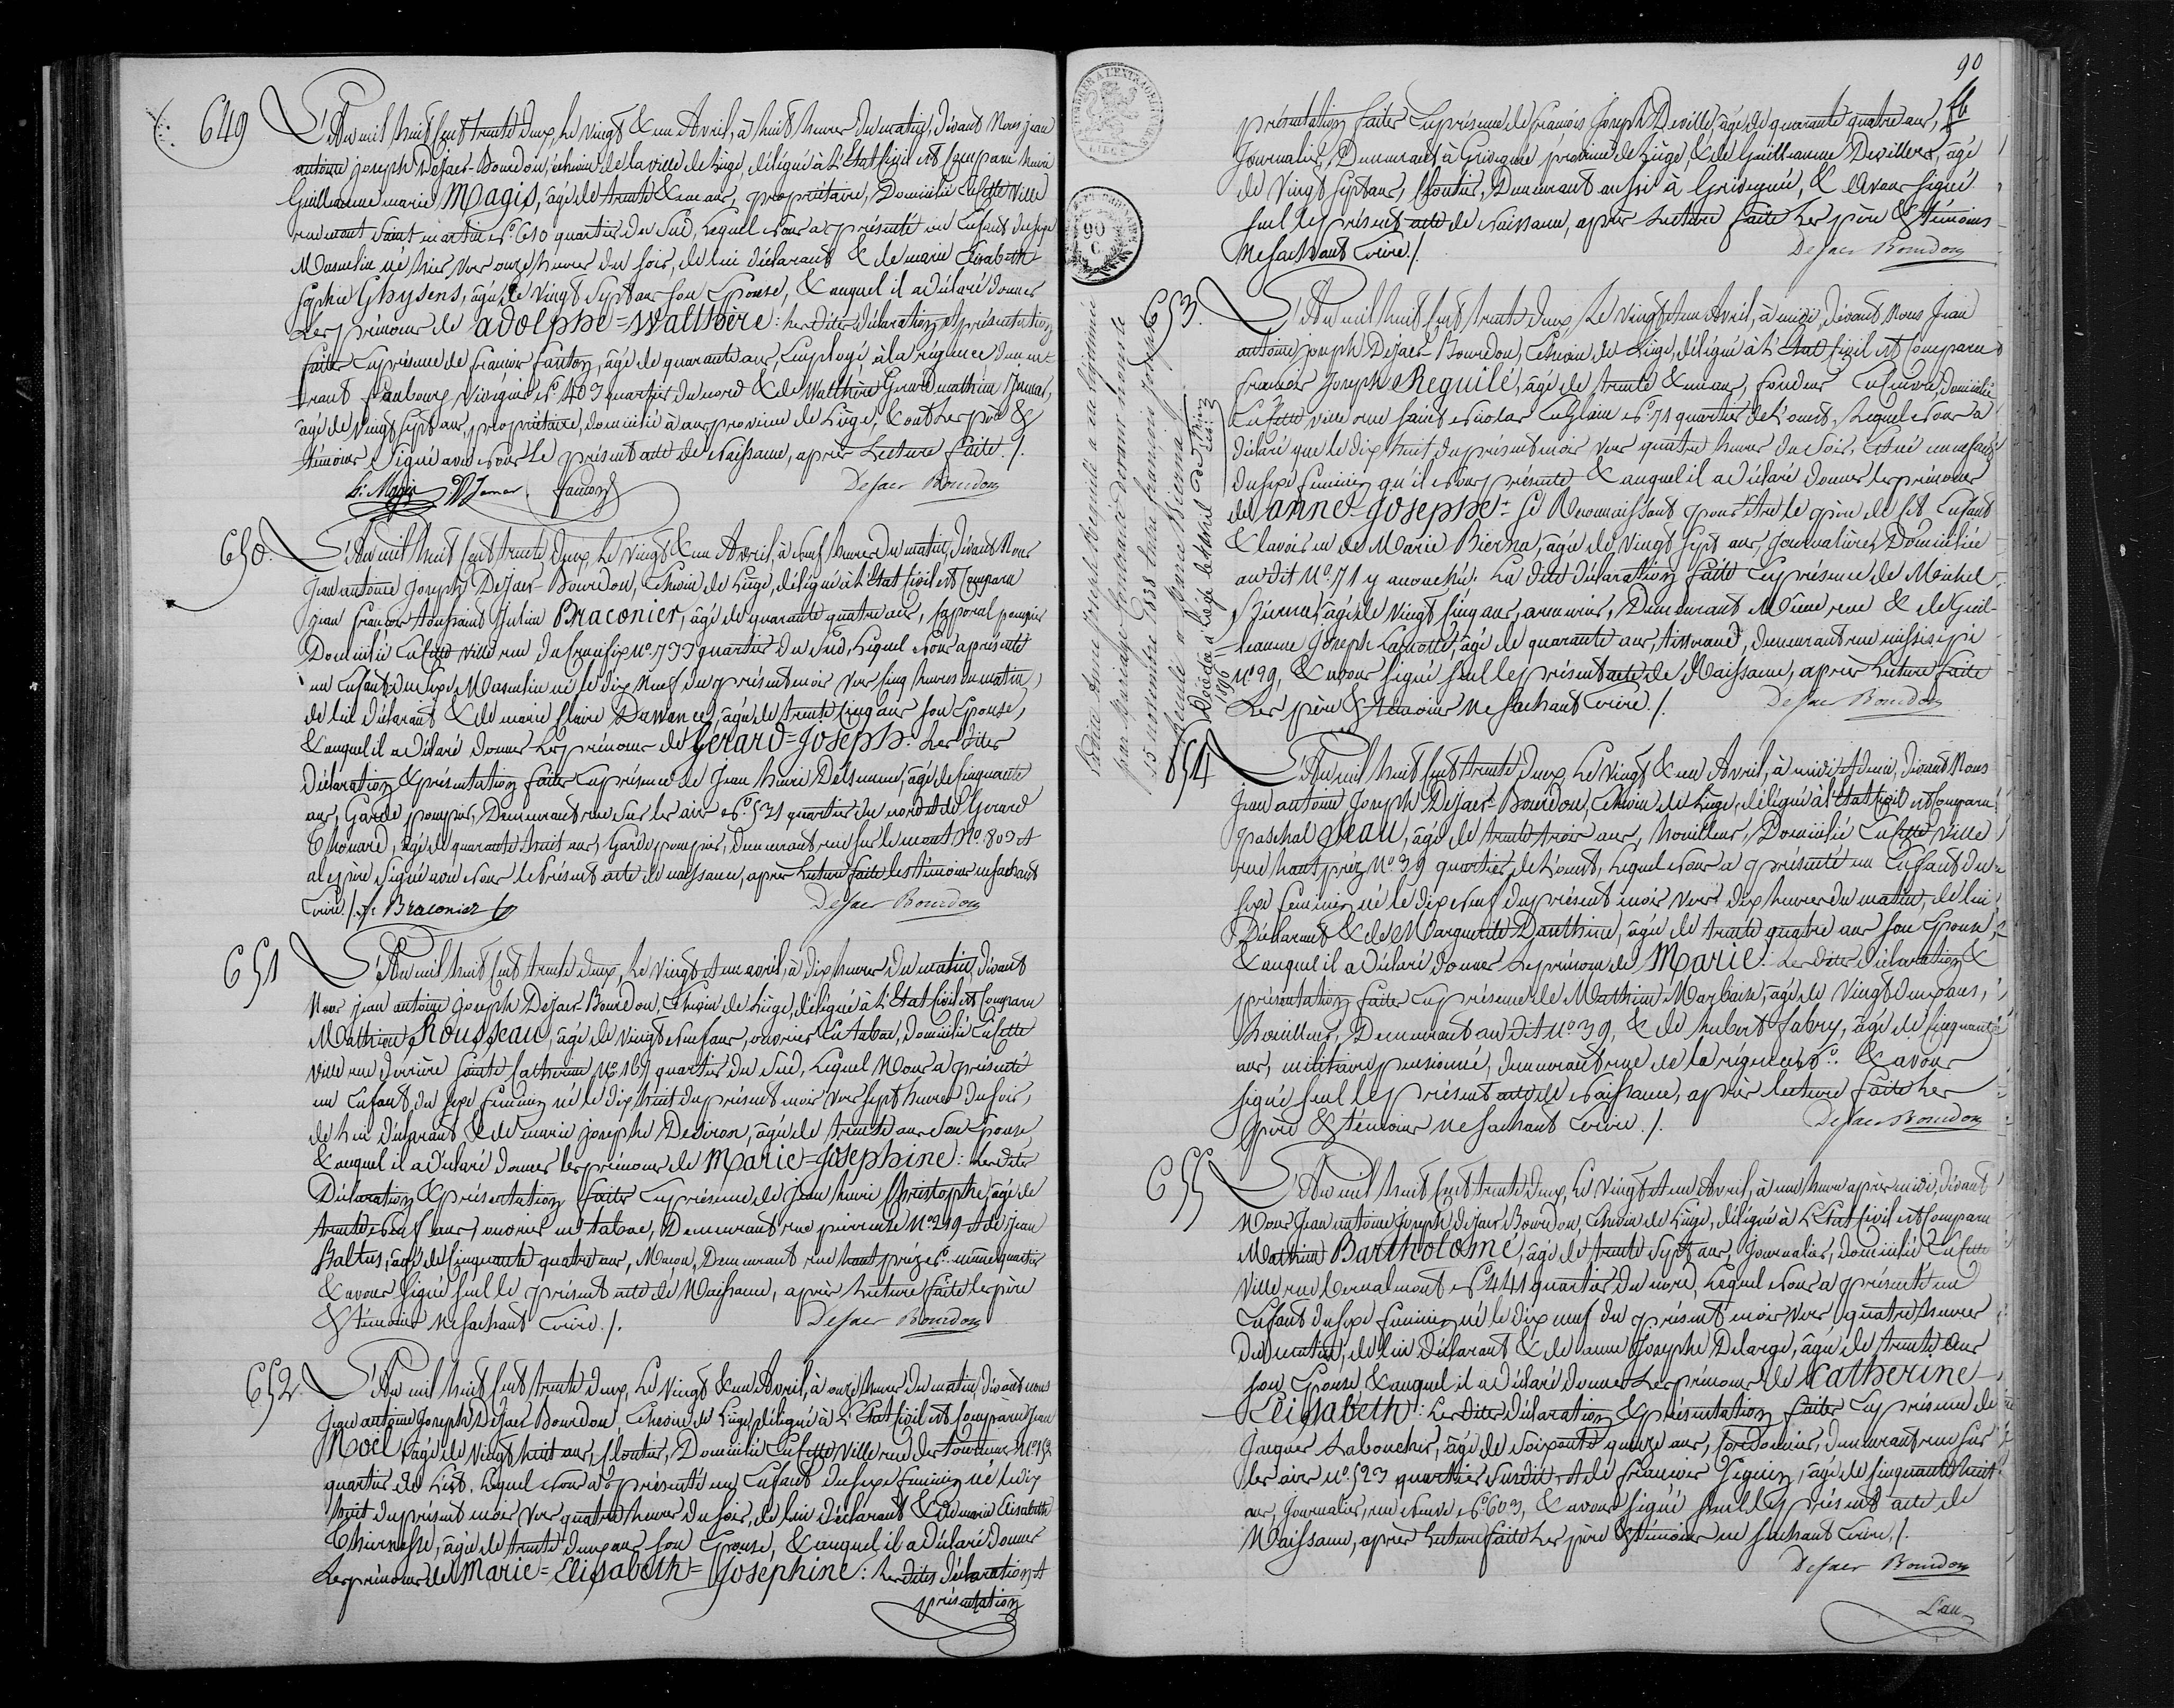 649
L'An mil huit cent trente deux, Le Vingt & un Avril, à huit heures Du matin, Devant Nous jean
antoine joseph Dejaer-Bourdon, échevin de la ville de Liége, délégué à L'Etat Civil est Comparu henri
Guillaume marie Magis, âgé de trente & un ans, propriétaire, Domicilié en cette ville
rue mont saint martin N.° 610 quartier du Sud, Lequel Nous a présenté un Enfant du sexe
Masculin né hier vers onze heures du soir, de lui déclarant & de marie Elisabeth
sophie Ghysens, âgée de vingt sept ans son Epouse, & auquel il a Déclaré donner
Les prénoms de Adolphe=Walthère: Les dites déclaration et présentation
faites en présence de françois fanton, âgé de quarante ans, Employé à la régence Demeu-
rant faubourg vivegnis N.° 403 quartier du nord & de Walthère Gerard mathieu Jamar,
âgé de vingt sept ans, propriétaire, domicilié à ans province de Liége, & ont Les père &
témoins Signé avec Nous Le présent acte de Naissance, après Lecture faite./.
h. Magis W Jamar fanton Dejaer Bourdon
650.
L'An mil huit cent trente Deux, Le Vingt & un Avril, à Neuf heures Du matin, Devant Nous
Jean antoine Joseph Dejaer-Bourdon, Echevin de Liége, délégué à L'Etat Civil est Comparu
jean françois toussaint Julien Braconier, âgé de quarante quatre ans, Caporal pompier
Domicilié en cette ville rue du Crucifix N.° 733 quartier du Sud, Lequel Nous a présenté
un Enfant du sexe Masculin né le dix Neuf du présent mois vers cinq heures du matin,
de lui déclarant & de marie claire Duwance, âgée de trente cinq ans son Epouse,
& auquel il a Déclaré donner Les prénoms de Gerard=Joseph: Les dites
Déclaration & présentation faites en présence de Jean henri Delsemme, âgé de cinquante
ans, Garde pompier, Demeurant rue sur les airs N.° 521 quartier du nord et de Gerard
Thonard, âgé de quarante huit ans, Garde pompier, demeurant rue sur le mont N.° 803 et
a le père signé avec Nous le Présent acte de naissance, après Lecture faite les témoins ne sachant
Ecrire./. Braconier Dejaer Bourdon
651
L'An mil huit cent trente deux, Le Vingt et un avril, à Dix heures Du matin, Devant
Nous jean antoine joseph Dejaer-Bourdon, Echevin de Liége, délégué à L'Etat Civil est Comparu
Mathieu Rousseau, âgé de vingt Neuf ans, ouvrier En tabac, domicilié en cette
ville rue derrière sainte Catherine N.° 167 quartier du Sud, Lequel Nous a présenté
un Enfant du sexe féminin né le dix huit du présent mois vers sept heures du soir,
de Lui déclarant & de marie josephe Desiron, âgée de trente ans son Epouse
& auquel il a Déclaré donner Les prénoms de Marie=Josephine: Les dites
Déclaration & présentation faites En présence de jean henri Christophe, âgé de
trente Neuf ans, ouvrier en tabac, Demeurant rue pierreuse N.° 219 et de jean
Baltus, âgé de cinquante quatre ans, Maçon, Demeurant rue haut préz N.° même quartier
& avons Signé seul le présent acte de Naissance, après Lecture faite les père
& témoins Ne sachant Ecrire./. Dejaer Bourdon
652
L'An mil huit cent trente deux, Le Vingt & un Avril, à onze heures Du matin, Devant nous
Jean antoine Joseph Dejaer Bourdon Echevin de Liége, délégué à L'Etat Civil est Comparu Jean
Noël, âgé de Vingt huit ans, cloutier, Domicilié En cette ville rue des tourneurs N.° 152
quartier de L'est, Lequel Nous a présenté un Enfant du sexe féminin né le dix
huit du présent mois vers quatre heures du soir, de lui déclarant & de marie Elisabeth
Thiernesse, âgée de trente deux ans son Epouse, & auquel il a Déclaré donner
Les prénoms de Marie=Elisabeth=Josephine: Les dites déclaration et
présentation
90
présentation faites En présence de françois Joseph Deville, âgé de quarante quatre ans,
Journalier, Demeurant à Grivegnée province de Liége, & de Guillaume Devillers, âgé
de Vingt sept ans, Cloutier, Demeurant aussi à Grivegnée, & Avons signé
seul le présent acte de Naissance, après Lecture faite Les père & témoins
Ne sachant Ecrire./. Dejaer Bourdon
653.
L'An mil huit cent trente deux, Le Vingt et un Avril, à midi, Devant Nous Jean
antoine joseph Dejaer Bourdon, Echevin de Liége, délégué à L'Etat Civil est Comparu
françois Joseph Reguilé, âgé de trente & un ans, fondeur En cuivre, domicilié
En cette ville rue saint Nicolas En Glain N.° 71 quartier de l'ouest, Lequel Nous a
déclaré que le dix huit du présent mois vers quatre heures du soir, est né un enfant
du sexe féminin qu'il Nous présente & auquel il a déclaré donner les prénoms
de anne=Josephe= Se Reconnaissant pour être le père de cet Enfant
& L'avoir eu de Marie Bierna, âgée de vingt sept ans, Journalière, Domiciliée
au dit N.° 71 y accouchée. La dite déclaration faite En présence de Michel
Bierna, âgé de vingt cinq ans, armurier, Demeurant Même rue & de Guil-
laume Joseph Lamotte, âgé de quarante ans, tisserand, demeurant rue mississipi
N.° 29, & avons signé seul le présent acte de Naissance, après Lecture faite
Les père & témoins Ne sachant Ecrire./. Dejaer Bourdon
Ladite Anne Joseph Reguilé a été légitimée
par mariage Contracté devant nous le
15 novembre 1838 entre françois joseph
Reguilé & Marie Bierna
Décédée à Liège le 1 avril
1896
654
L'An mil huit cent trente deux, Le Vingt & un Avril, à midi et demi, Devant Nous
Jean antoine Joseph Dejaer-Bourdon, Echevin de Liége, délégué à l'Etat Civil est Comparu
paschal Jeau, âgé de trente trois ans, houilleur, Domicilié En cette ville
rue haut préz N.° 39 quartier de L'ouest, Lequel Nous a présenté un Enfant du
sexe féminin né le dix Neuf du présent mois vers dix heures du matin, de lui
Déclarant & de Marguerite Danthine, âgée de trente quatre ans son Epouse,
& auquel il a Déclaré donner Le prénom de Marie. Les dites déclaration &
présentation faites En présence de Mathieu Marbaise, âgé de vingt deux ans,
houilleur, Demeurant au dit N.° 39, & de hubert fabry, âgé de cinquante
ans, militaire pensionné, demeurant rue de la régence N.° & avons
signé seul le présent acte de Naissance, après lecture faite Les
père & témoins Ne sachant Ecrire./. Dejaer Bourdon
655
L'An mil huit cent trente deux, Le Vingt et un Avril, à une heure après midi, Devant
Nous Jean antoine Joseph Dejaer Bourdon, Echevin de Liége, délégué à L'Etat Civil est Comparu
Mathieu Bartholomé, âgé de trente sept ans, Journalier, domicilié En cette
ville rue bernalmont N.° 441 quartier du nord, Lequel Nous a présenté un
Enfant du sexe féminin né le dix neuf du présent mois vers quatre heures
du matin, de lui déclarant & de anne Josephe Delarge, âgée de trente ans
son Epouse, & auquel il a déclaré donner Les prénoms de Catherine
Elisabeth: Les dites déclaration & présentation faites En présence de
Jacques Laboucher, âgé de soixante quinze ans, cordonnier, demeurant rue sur
les airs N.° 523 quartier susdit et de françois Seguin, âgé de cinquante huit
ans, Journalier, rue Neuve N.° 603, & avons signé seul le présent acte de
Naissance, après Lecture faite Les père & témoins ne sachant Ecrire./.
Dejaer Bourdon
L'an